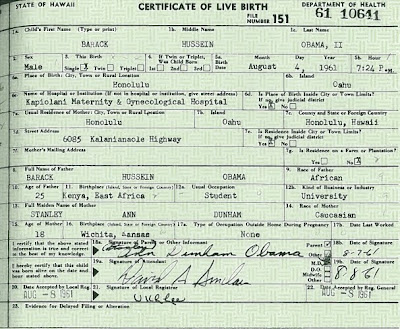 STATE OF HAWAII CERTIFICATE OF LIVE BIRTH DEPARTMENT OF HEALTH
FILE NUMBER 151 61 10641
1a. Child's First Name (Type or print) 1b. Middle Name 1c. Last Name
BARACK HUSSEIN OBAMA, II
2. Sex 3. This Birth 4. If Twin or Triplet, Was Child Born 5a. Birth Date Month Day Year 5b. Hour
Male Single X Twin Triplet 1st 2nd 3rd August 4, 1961 7:24 P.M.
6a. Place of Birth: City, Town or Rural Location 6b. Island
Honolulu Oahu
6c. Name of Hospital or Institution (If not in hospital or institution, give street address) 6d. Is Place of Birth Inside City or Town Limits? If no, give judicial district
Kapiolani Maternity & Gynecological Hospital Yes X No
7a. Usual Residence of Mother: City, Town or Rural Location 7b. Island 7c. County and State or Foreign Country
Honolulu Oahu Honolulu, Hawaii
7d. Street Address 7e. Is Residence Inside City or Town Limits? If no, give judicial district
6085 Kalanianaole Highway Yes X No
7f. Mother's Mailing Address 7g. Is Residence on a Farm or Plantation?
Yes No X
8. Full Name of Father 9. Race of Father
BARACK HUSSEIN OBAMA African
10. Age of Father 11. Birthplace (Island, State or Foreign Country) 12a. Usual Occupation 12b. Kind of Business or Industry
25 Kenya, East Africa Student University
13. Full Maiden Name of Mother 14. Race of Mother
STANLEY ANN DUNHAM Caucasian
15. Age of Mother 16. Birthplace (Island, State or Foreign Country) 17a. Type of Occupation Outside Home During Pregnancy 17b. Date Last Worked
18 Wichita, Kansas None
I certify that the above stated information is true and correct to the best of my knowledge. 18a. Signature of Parent or Other Informant Parent Other 18b. Date of Signature
Ann Dunham Obama 8-7-61
I hereby certify that this child was born alive on the date and hour stated above. 19a. Signature of Attendant M.D. D.O. Midwife Other 19b. Date of Signature
David A Sinclair 8-8-61
20. Date Accepted by Local Reg. 21. Signature of Local Registrar 22. Date Accepted by Reg. General
AUG -8 1961 U K Lee AUG -8 1961
23. Evidence for Delayed Filing or Alteration